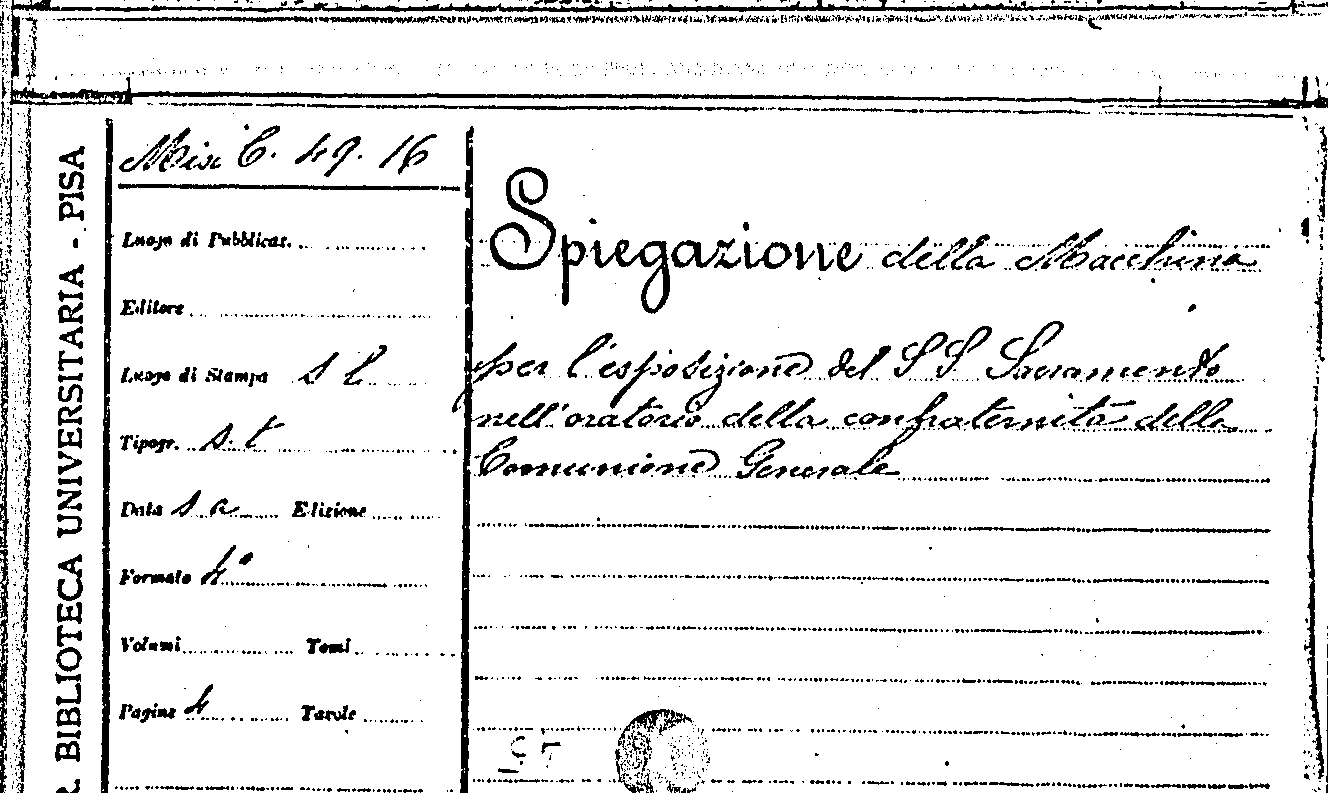 R. BIBLIOTECA UNIVERSITARIA - PISA
Misc C. 49. 16
Luogo di Pubblicaz.
Editore
Luogo di Stampa s l
Tipogr. s. t
Data s a Edizione
Formato 4°
Volumi Tomi
Pagine 4 Tavole
Spiegazione della Macchina
per l'esposizione del SS Sacramento
nell'oratorio della confraternità della
Comunione Generale